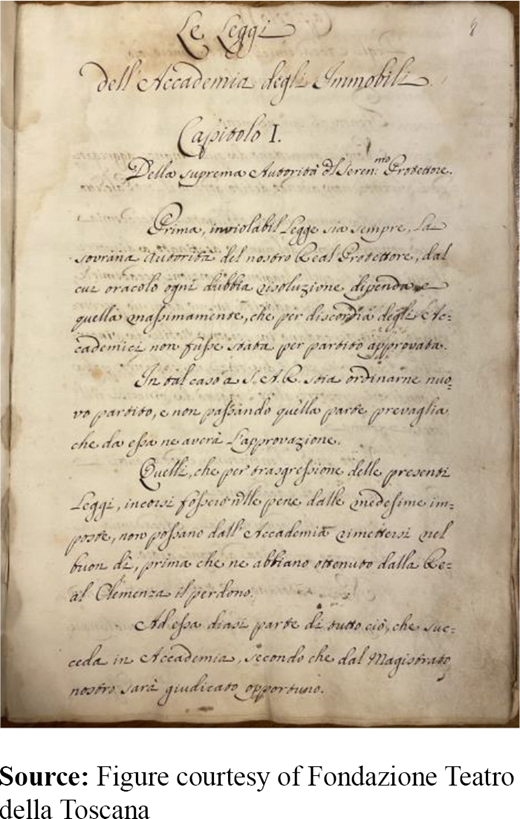 Le Leggi
dell'Accademia degli Immobili
Capitolo I.
Della suprema Autorità dl Seren.mo Protettore.
Prima, inviolabil Legge sia sempre, la
sovrana Autorità del nostro Real Protettore, dal
cui oracolo ogni dubbia risoluzione dipenda e
quella massimamente, che per discordia degli Ac=
cademici non fusse stata per partito approvata.
In tal caso a S.A.R. stia ordinarne nuo=
vo partito, e non passando quella parte prevaglia
che da essa ne averà l'approvazione.
Quelli, che per trasgressione delle presenti
Leggi, incorsi fossero nlle pene dalle medesime im=
poste, non possano dall'Accademia rimettersi nel
buon dì, prima che ne abbiano ottenuto dalla Re=
al Clemenza il perdono.
Ad essa diasi parte di tutto ciò, che suc=
ceda in Accademia, secondo che dal Magistrato
nostro sarà giudicato opportuno.
Source: Figure courtesy of Fondazione Teatro
della Toscana